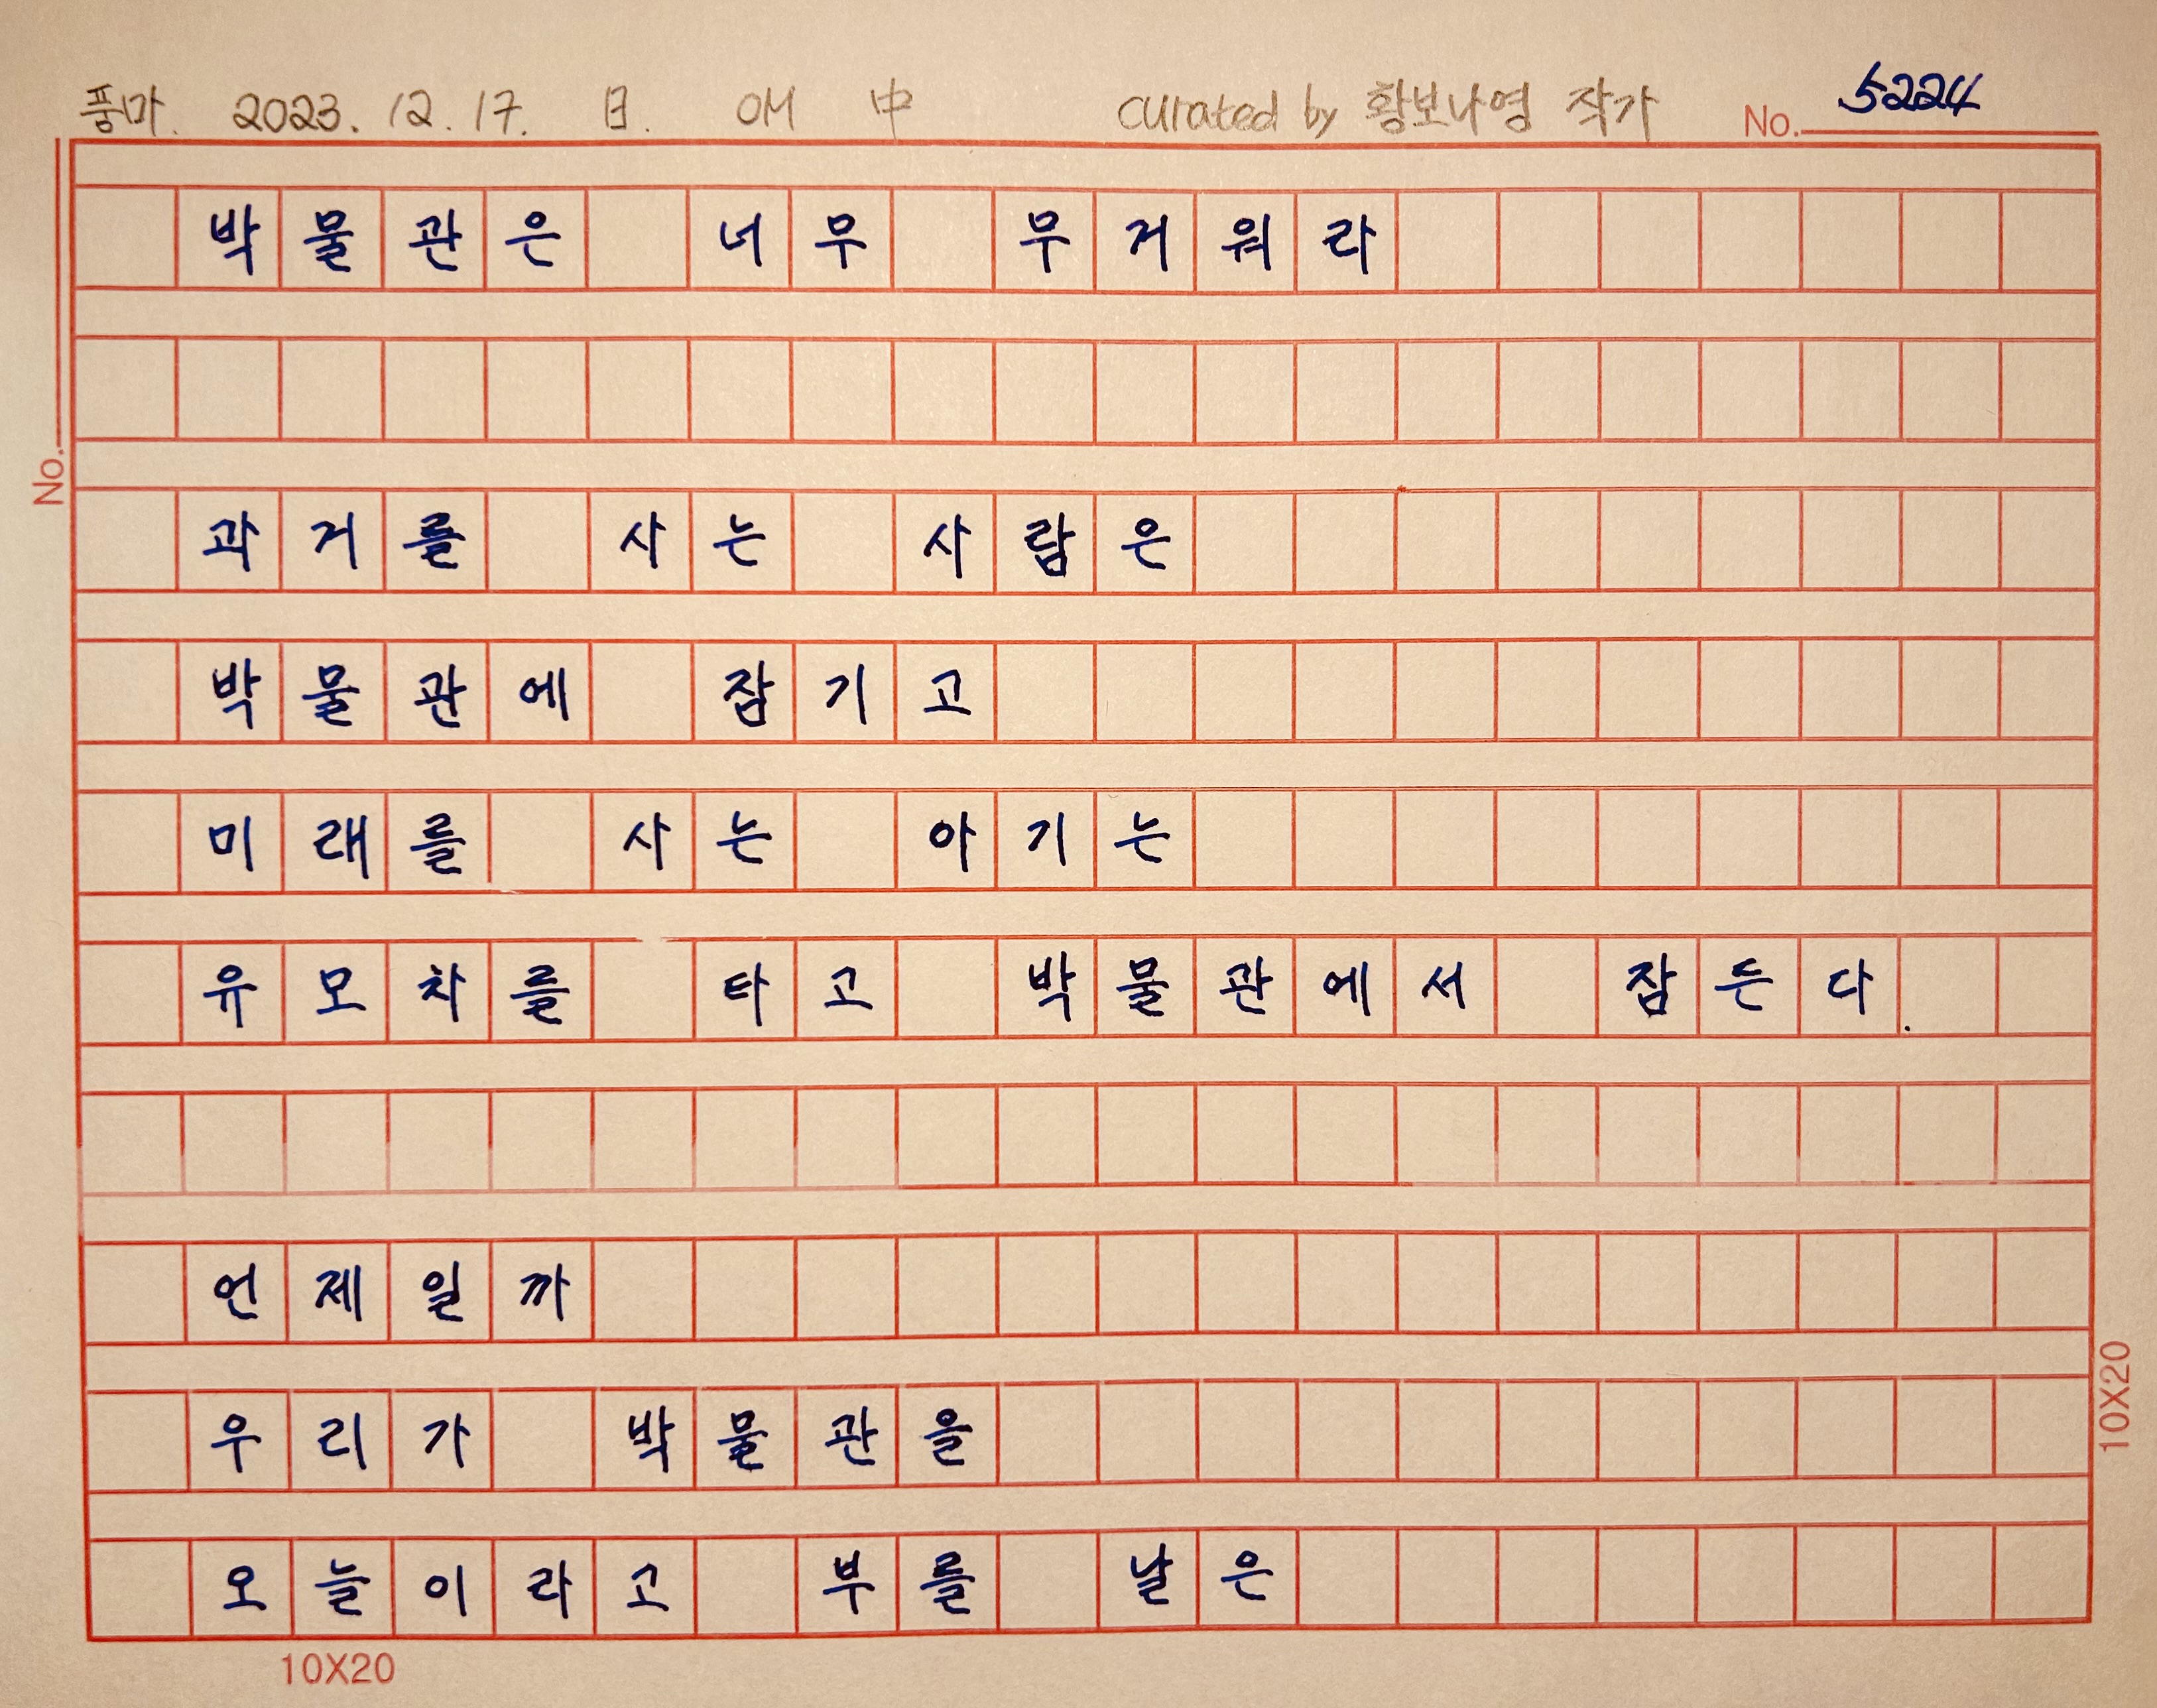 풍마. 2023. 12. 17. 日. OH 中 curated by 황보나영 작가 No. 5224
박물관은 너무 무거워라
No.
과거를 사는 사람은
박물관에 잠기고
미래를 사는 아기는
유모차를 타고 박물관에서 잠든다.
언제일까
우리가 박물관을
오늘이라고 부를 날은
10X20
10X20